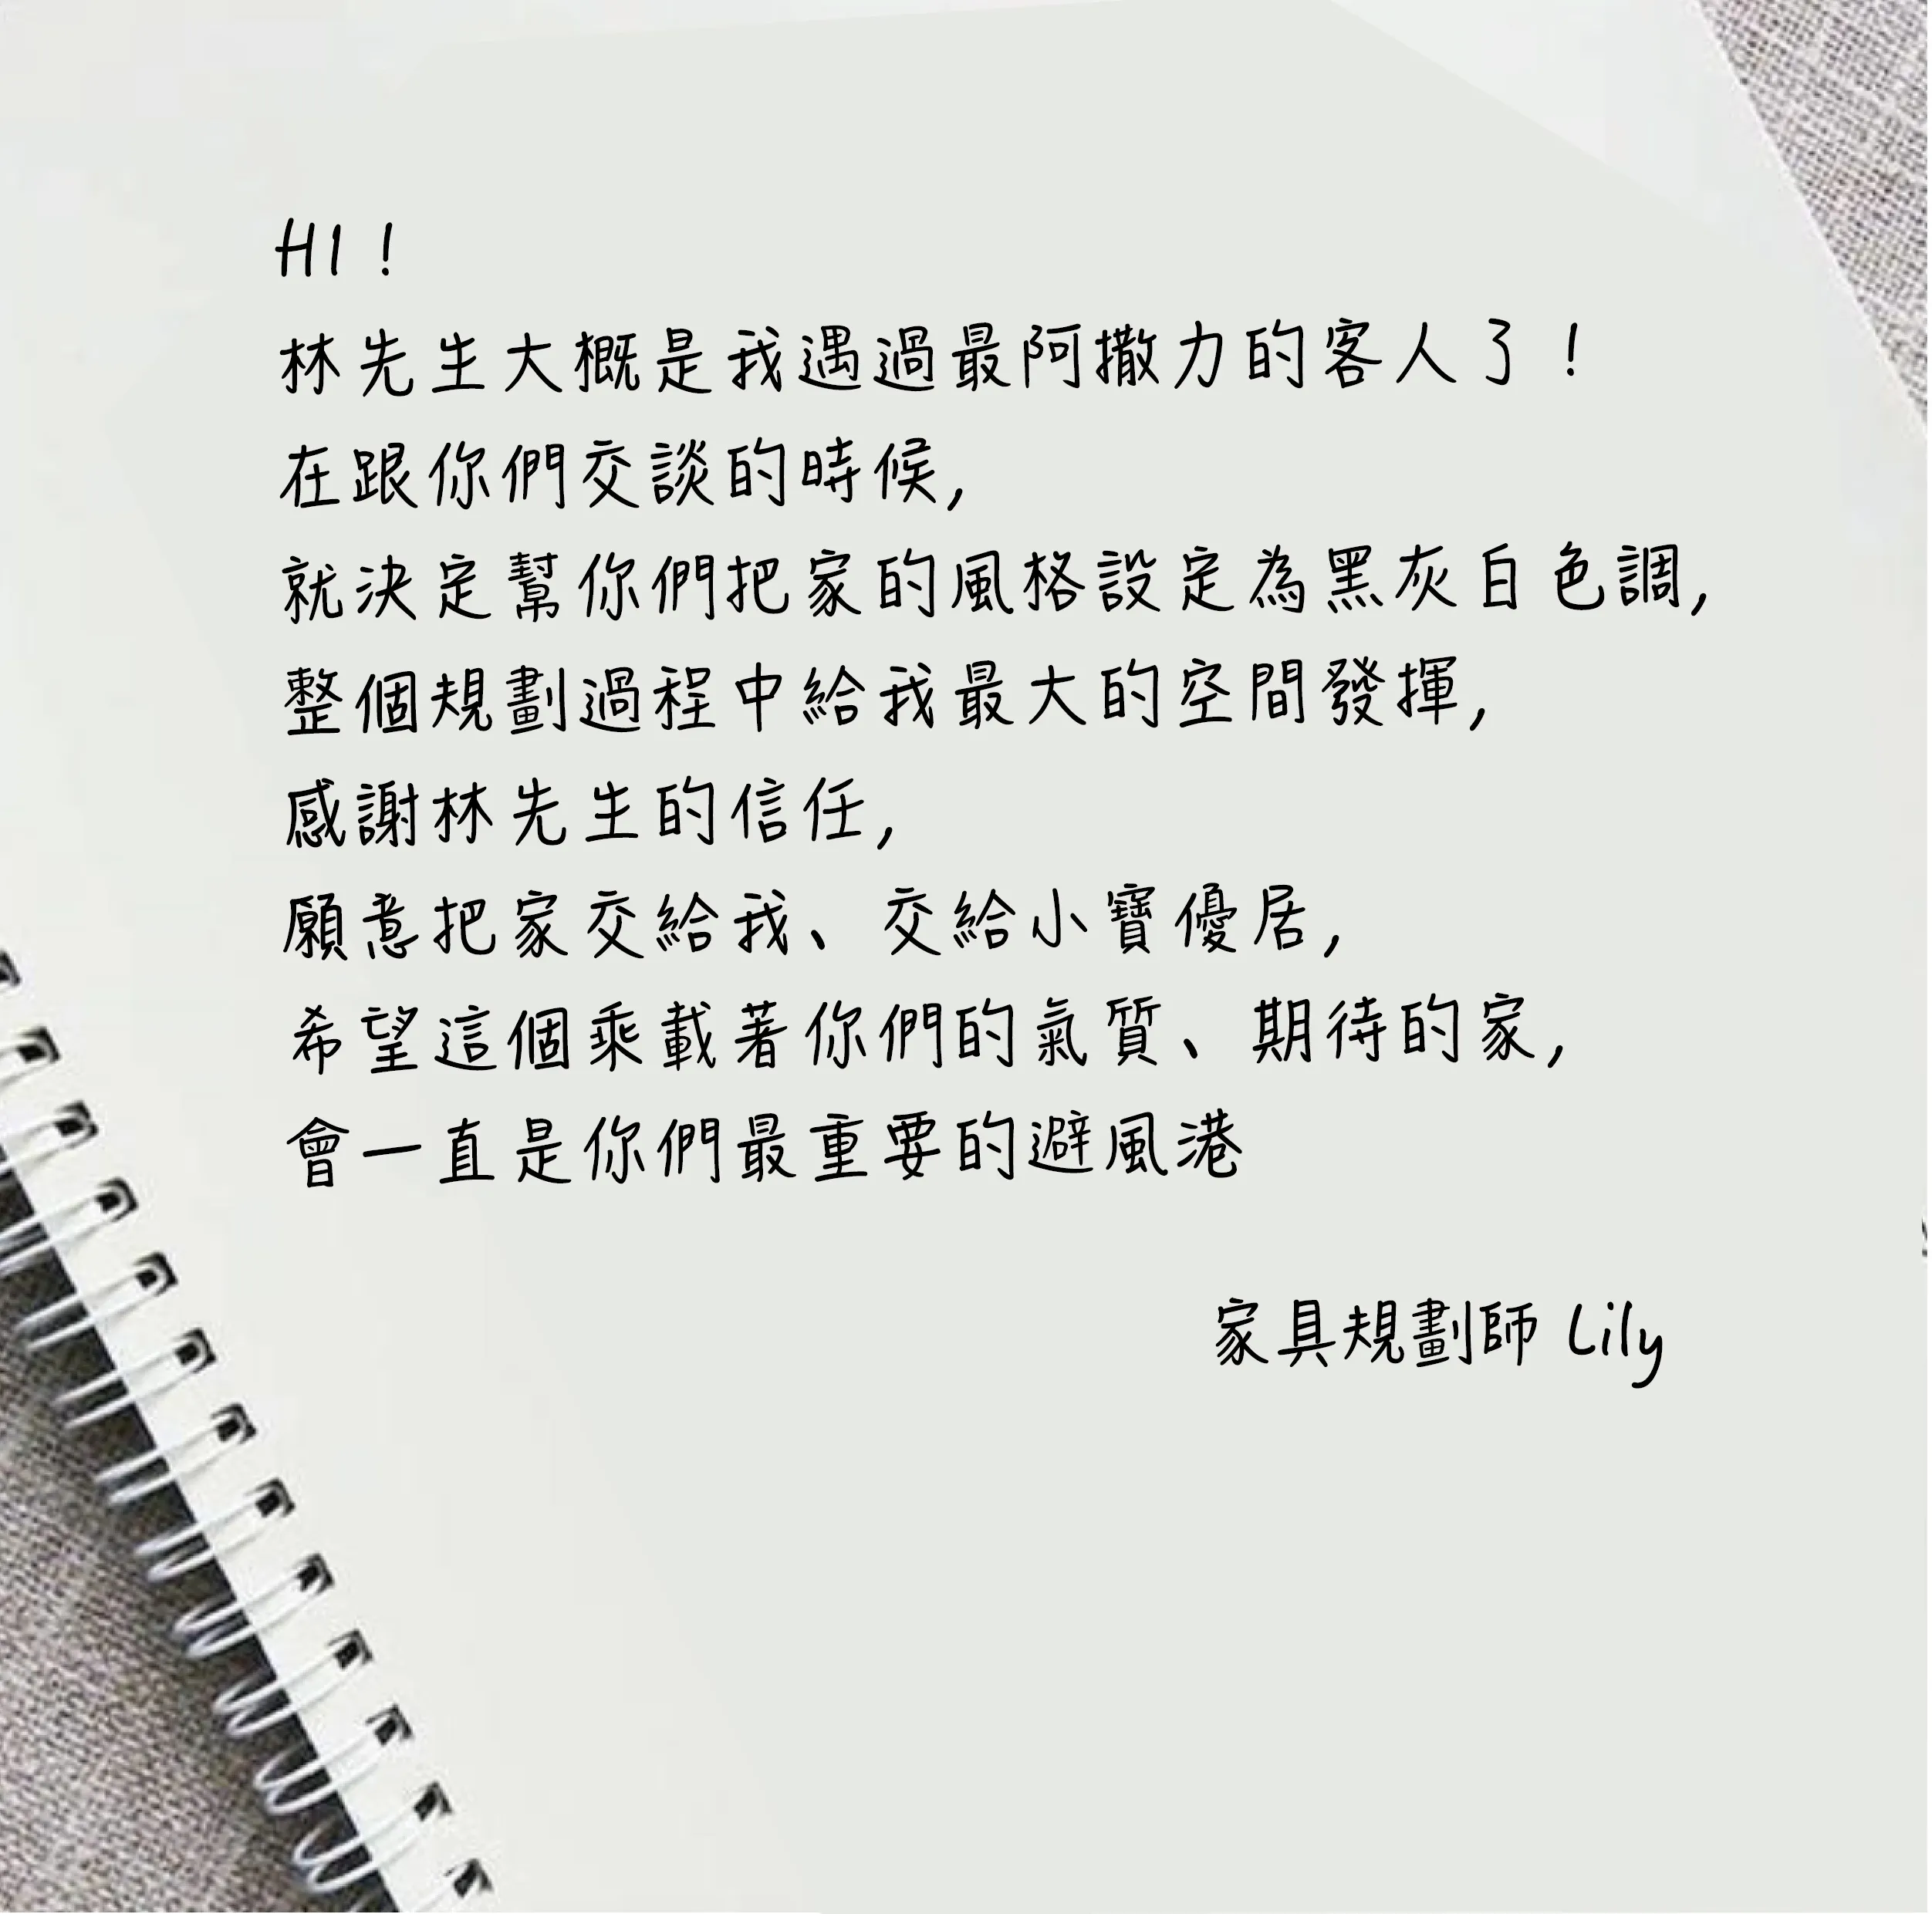 HI！
林先生大概是我遇過最阿撒力的客人了！
在跟你們交談的時候,
就決定幫你們把家的風格設定為黑灰白色調,
整個規劃過程中給我最大的空間發揮,
感謝林先生的信任,
願意把家交給我、交給小寶優居,
希望這個乘載著你們的氣質、期待的家,
會一直是你們最重要的避風港
家具規劃師 Lily